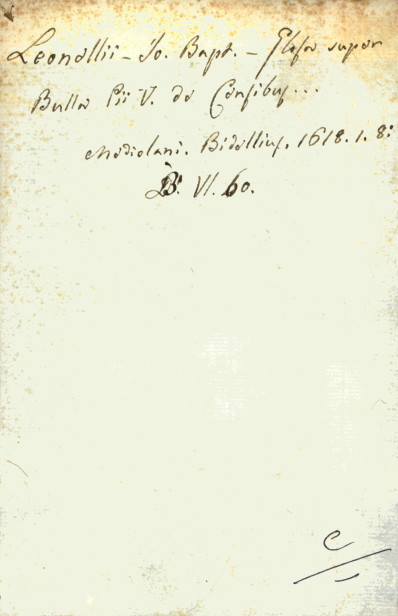 Leonellii - Jo. Bapt. - Glosa super
Bulla Pii V. de Censibus...
Mediolani. Bidelliu, 1618. 1. 8:
B. VI. 60.
C